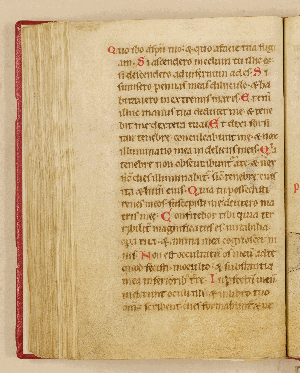 Quo ibo a spu tuo & quo a facie tua fugi
am. Si ascendero in celum tu illic es
si descendero ad infernum ades. Si
sumpsero pennas meas diluculo & ha
bitavero in extremis maris. Et eni
illuc manus tua deducet me & tene
bit me dextera tua. Et dixi forsi
tan tenebre conculcabunt me & nox
illuminatio mea in deliciis meis. Quia
tenebre non obscurabuntur a te & nox
sic dies illuminabitur sic tenebre eius
ita & lum eius. Quia tu possedisti
renes meos suscepisti me de utero ma
tris mee. Confitebor tibi quia ter
ribilit magnificatus es mirabilia
opa tua & anima mea cognoscet ni
mis. Non est occultatum os meum a te
quod fecisti in occulto & substantia
mea in inferiorib terre. Inpfectum meum
viderunt oculi tui & in libro tuo
oms scribentur dies formabuntur & ne